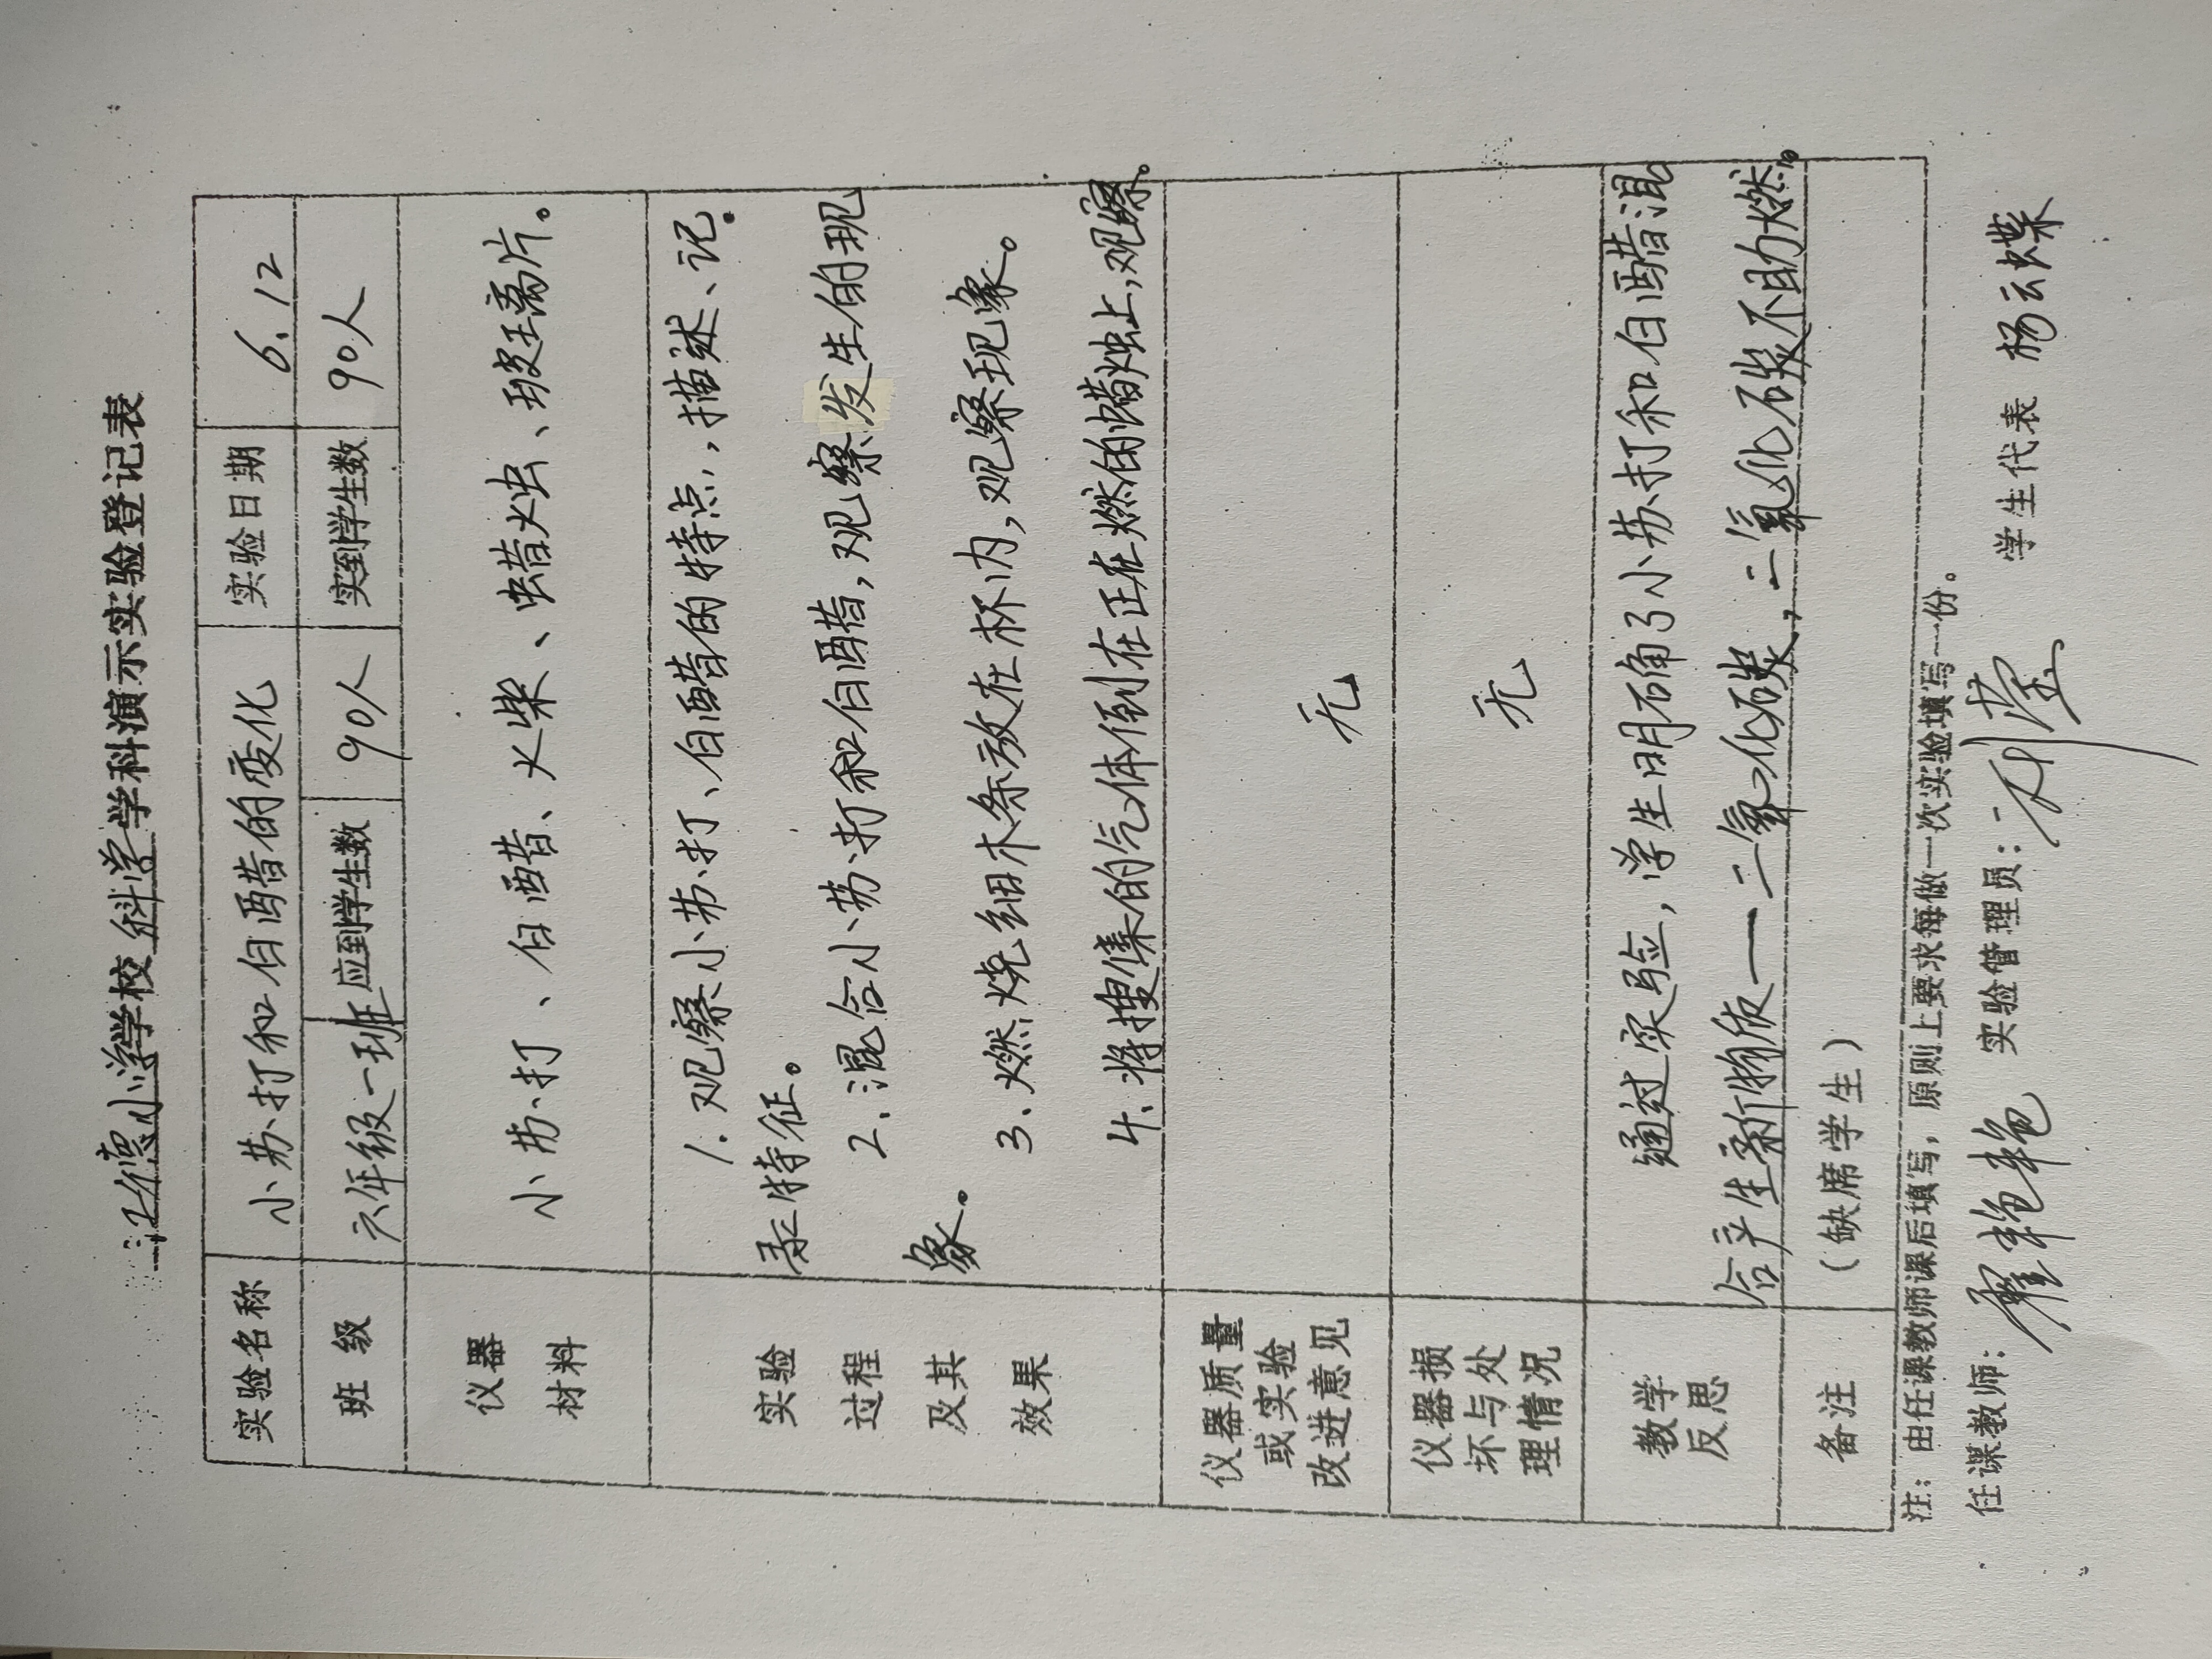 汪德小学学校科学学科演示实验登记表
实验名称 小苏打和白醋的变化 实验日期 6.12
班 级 六年级一班 应到学生数 90人 实到学生数 90人
仪器
材料
小苏打、白醋、火柴、蜡烛、玻璃片。
实验
过程
及其
效果
1. 观察小苏打、白醋的特点,描述、记
录特征。
2. 混合小苏打和白醋,观察发生的现
象。
3. 燃烧细木条放在杯内,观察现象。
4. 将搜集的气体倒在正在燃的蜡烛上,观察。
仪器质量
或实验
改进意见
无
仪器损
坏与处
理情况
无
教学
反思
通过实验,学生明确了小苏打和白醋混
合产生新物质——二氧化碳,二氧化碳不助燃。
备注 (缺席学生)
注:由任课教师课后填写,原则上要求每做一次实验填写一份。
任课教师: 艳艳 实验管理员: 学生代表 杨云蝶